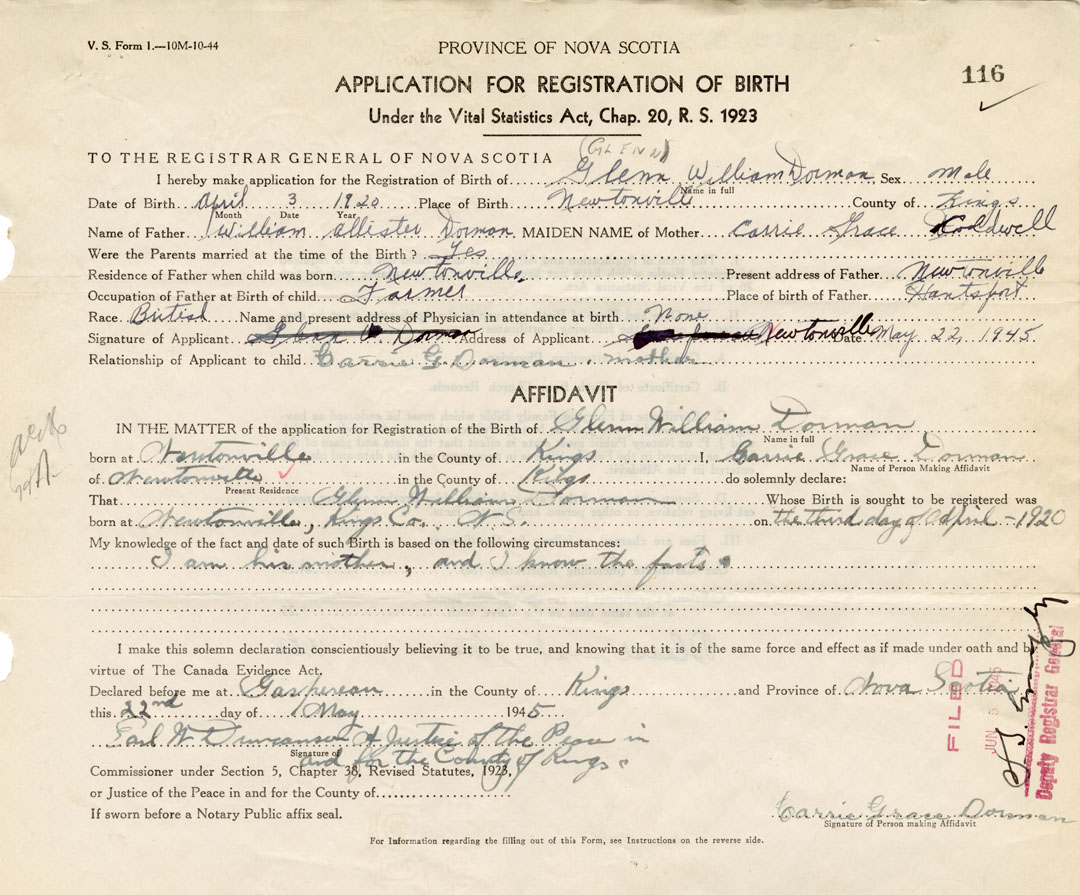 V. S. Form 1.—10M-10-44
PROVINCE OF NOVA SCOTIA
116
APPLICATION FOR REGISTRATION OF BIRTH
Under the Vital Statistics Act, Chap. 20, R. S. 1923
(GLENN)
TO THE REGISTRAR GENERAL OF NOVA SCOTIA
I hereby make application for the Registration of Birth of Glenn William Dorman Sex Male
Name in full
Date of Birth April 3 1920 Place of Birth Newtonville County of Kings
Month Date Year
Name of Father William Allister Dorman MAIDEN NAME of Mother Carrie Grace Coldwell
Were the Parents married at the time of the Birth? Yes
Residence of Father when child was born Newtonville Present address of Father Newtonville
Occupation of Father at Birth of child Farmer Place of birth of Father Hantsport
Race British Name and present address of Physician in attendance at birth None
Signature of Applicant Glenn W Dorman Address of Applicant Newtonville Date May 22, 1945
Relationship of Applicant to child Carrie G. Dorman. mother
AFFIDAVIT
IN THE MATTER of the application for Registration of the Birth of Glenn William Dorman
Name in full
born at Newtonville in the County of Kings I, Carrie Grace Dorman
Name of Person Making Affidavit
of Newtonville in the County of Kings do solemnly declare:
Present Residence
That Glenn William Dorman Whose Birth is sought to be registered was
born at Newtonville, Kings Co. N.S. on the third day of April - 1920
My knowledge of the fact and date of such Birth is based on the following circumstances:
I am his mother, and I know the facts.
I make this solemn declaration conscientiously believing it to be true, and knowing that it is of the same force and effect as if made under oath and by
virtue of The Canada Evidence Act.
Declared before me at Gaspereau in the County of Kings and Province of Nova Scotia
this 22nd day of May 1945
Earl W Duncanson A Justice of the Peace in
Signature of
and for the County of Kings.
Commissioner under Section 5, Chapter 38, Revised Statutes, 1923,
or Justice of the Peace in and for the County of
If sworn before a Notary Public affix seal.
Carrie Grace Dorman
Signature of Person making Affidavit
For Information regarding the filling out of this Form, see Instructions on the reverse side.
FILED
JUN 1945
Deputy Registrar General